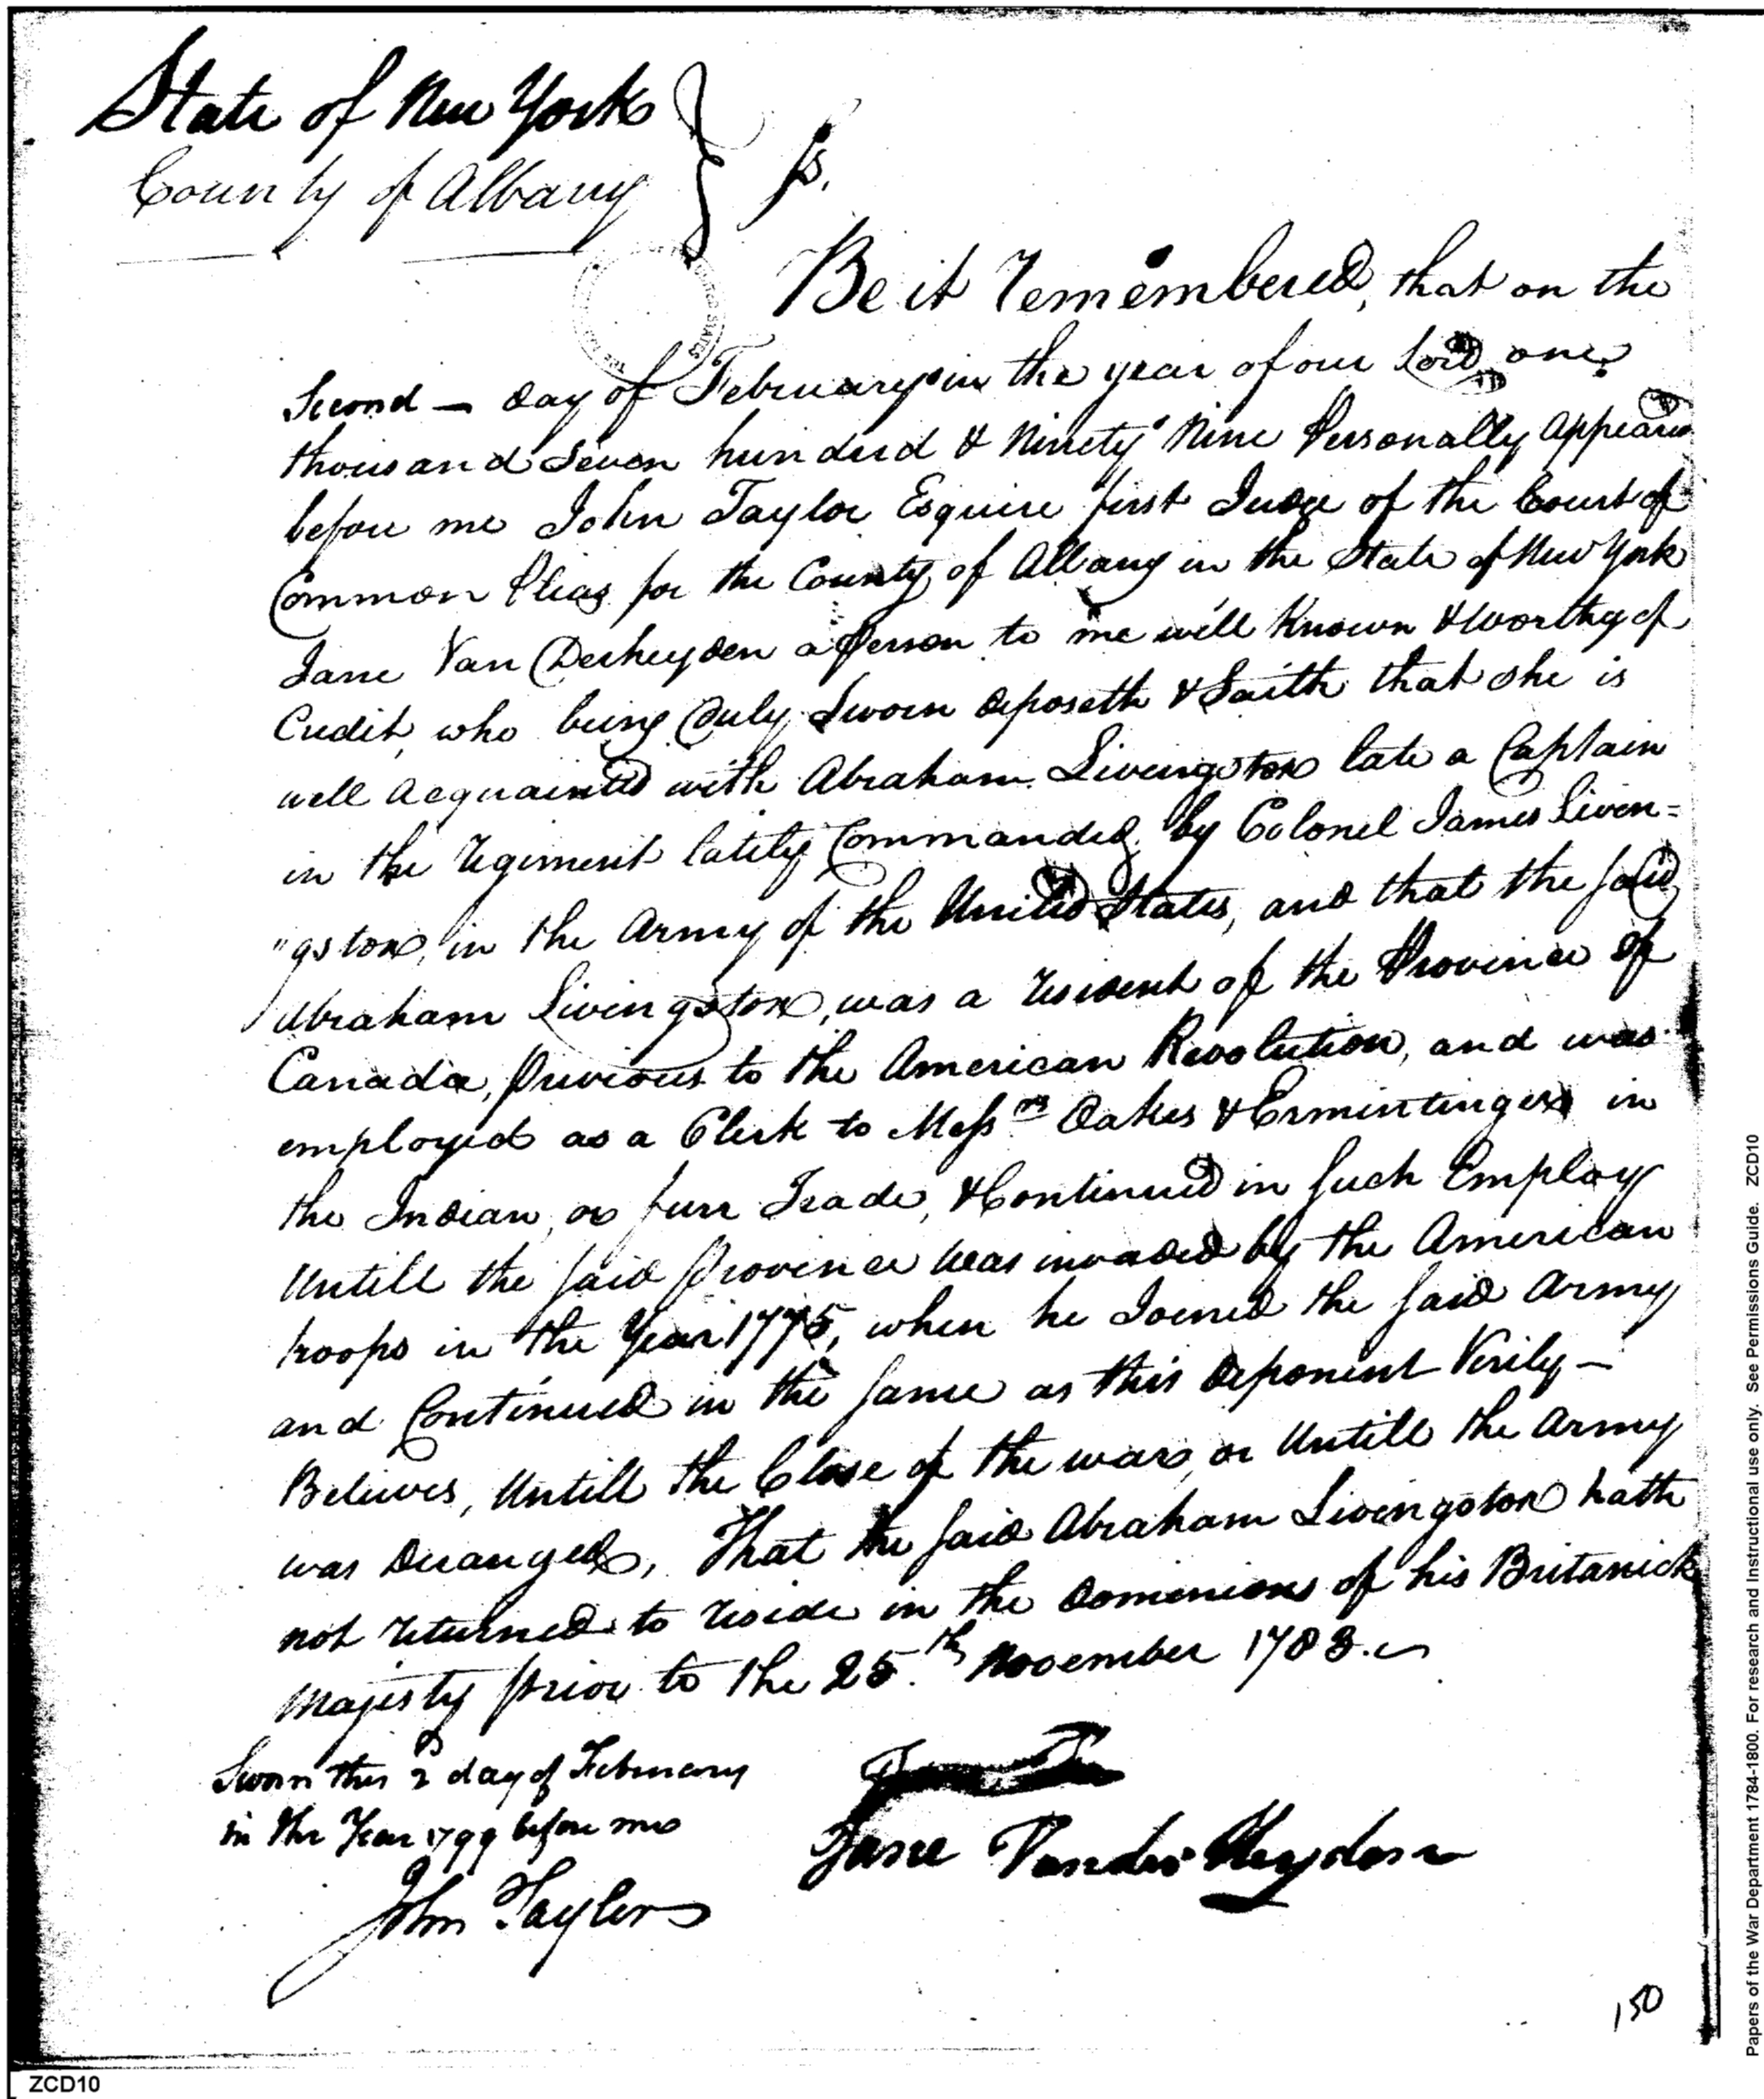 State of New York
County of Albany
ss.
Be it remembered, that on the
Second — day of February in the year of our Lord one
thousand Seven hundred & Ninety Nine Personally Appeared
before me John Taylor Esquire first Judge of the Court of
Common Pleas for the County of Albany in the State of New York
Jane Van Derheyden a Person to me well Known & worthy of
Credit, who being Duly Sworn deposeth & Saith that she is
well acquainted with Abraham Livingston late a Captain
in the regiment lately Commanded by Colonel James Liven=
"gston, in the Army of the United States, and that the said
Abraham Livingston, was a resident of the Province of
Canada, previous to the American Revolution, and was
employed as a Clerk to Messrs Oakes & Ermintinger in
the Indian, or furr Trade, & Continued in such Employ
Untill the said province was invaded by the American
troops in the Year 1775, when he Joined the said Army
and Continued in the same as this deponent Verily —
Believes, Untill the Close of the war, or Untill the Army
was deranged, That the said Abraham Livingston hath
not returned to reside in the dominions of his Britanick
Majesty prior to the 25th November 1783.
Sworn this 2d day of February
in the Year 1799 before me
John Taylor
Jane Vander Heyden
150
ZCD10
Papers of the War Department 1784-1800. For research and Instructional use only. See Permissions Guide. ZCD10